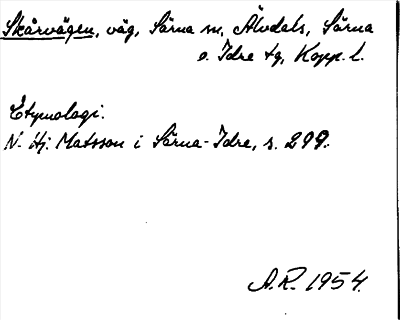 Skårvägen, väg, Särna sn, Älvdals, Särna
o. Idre tg, Kopp. l.
Etymologi.
N. Hj. Matsson i Särna-Idre, s. 299.
A.R. 1954.